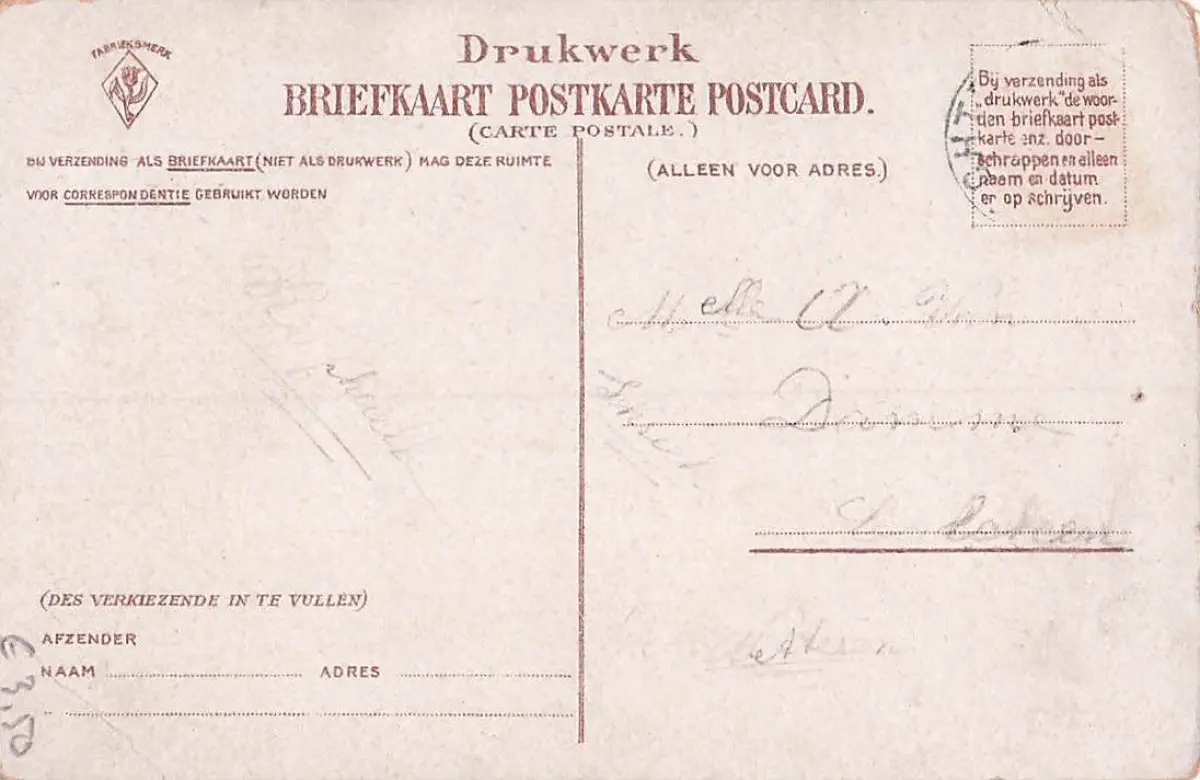 FABRIEKSMERK
Drukwerk
BRIEFKAART POSTKARTE POSTCARD.
(CARTE POSTALE.)
BIJ VERZENDING ALS BRIEFKAART (NIET ALS DRUKWERK) MAG DEZE RUIMTE
VOOR CORRESPONDENTIE GEBRUIKT WORDEN
(ALLEEN VOOR ADRES.)
Bij verzending als
„drukwerk" de woor-
den briefkaart post-
karte enz. door-
schrappen en alleen
naam en datum
er op schrijven.
Melle A. Van
Damme
(DES VERKIEZENDE IN TE VULLEN)
AFZENDER
NAAM ADRES
€ 3,50